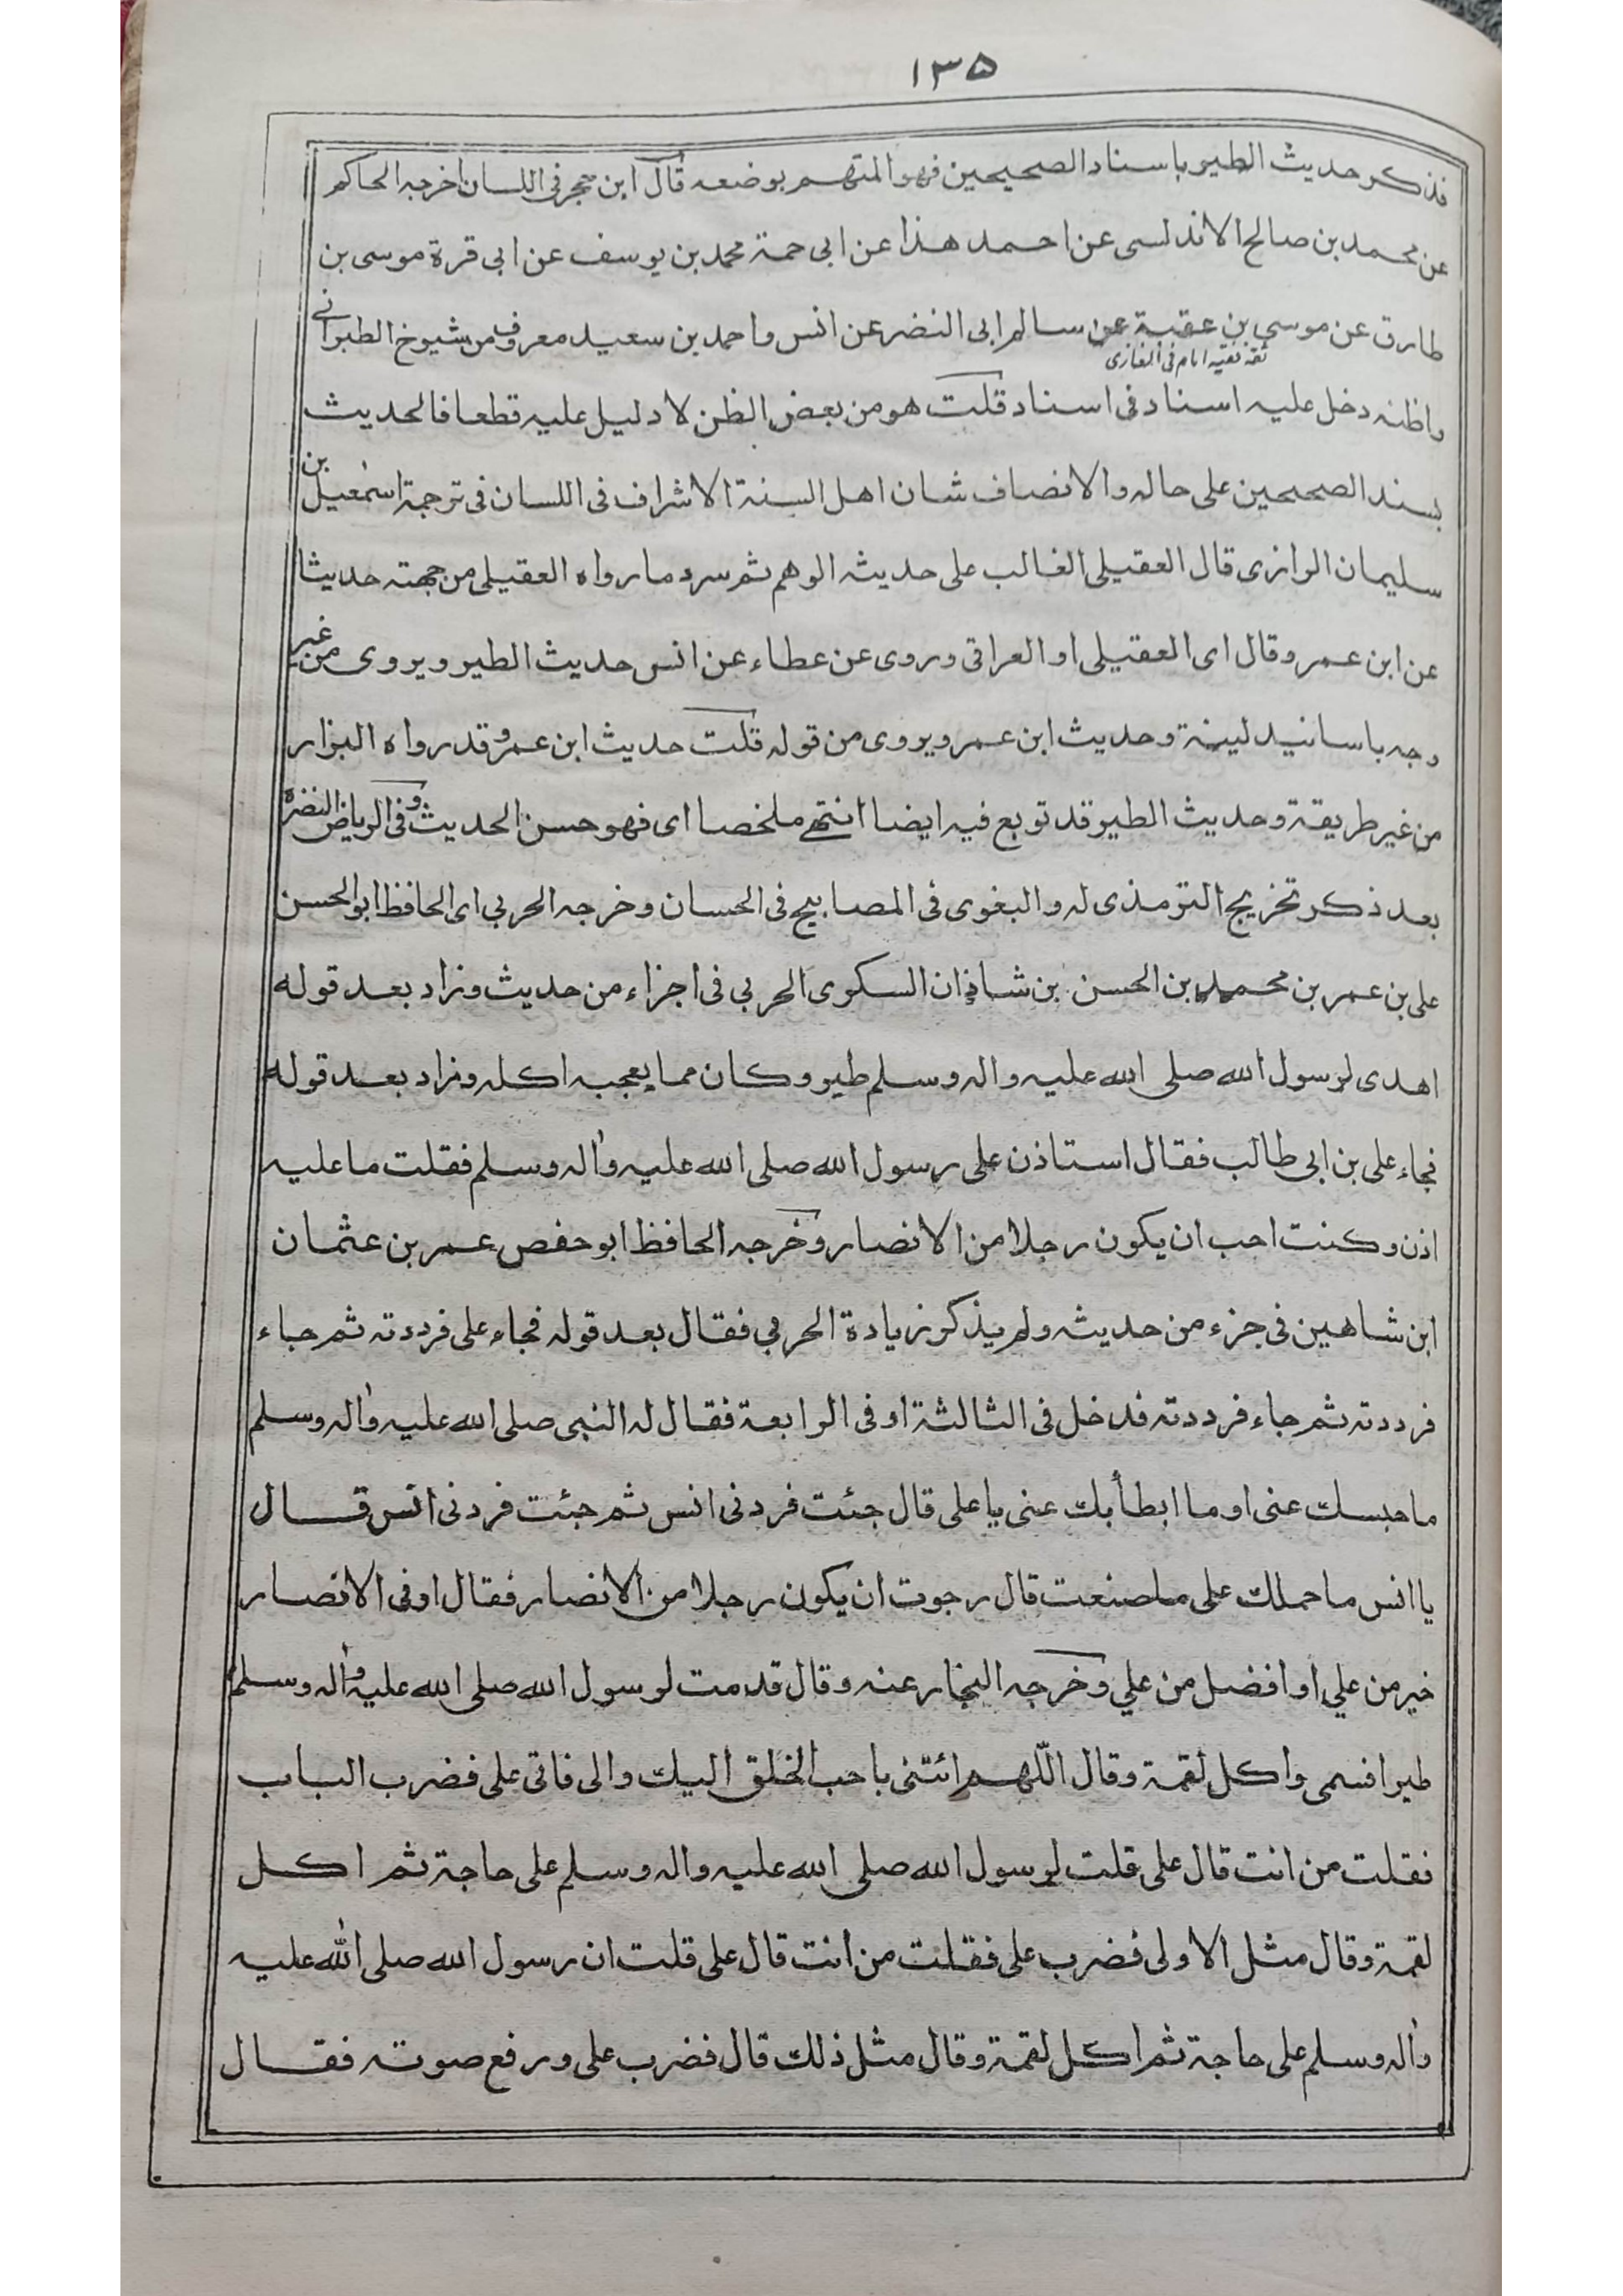 ١٣٥
فذكر حديث الطير باسناد الصحيحين فهو المتهم بوضعه قال ابن حجر فى اللسان اخرجه الحاكم
عن محمد بن صالح الاندلسى عن احمد هذا عن ابى حمة محمد بن يوسف عن ابى قرة موسى بن
طارق عن موسى بن عقبة عن سالم ابى النضر عن انس واحمد بن سعيد معروف من شيوخ الطبرانے
ثقة فقيه امام فى المغازى
واظنه دخل عليه اسناد فى اسناد قلت هو من بعض الظن لا دليل عليه قطعا فالحديث
بسند الصحيحين على حاله والانصاف شان اهل السنة الاشراف فى اللسان فى ترجمة اسمٰعيل بن
سليمان الرازى قال العقيلى الغالب على حديثه الوهم ثم سرد ما رواه العقيلى من جهته حديثا
عن ابن عمر وقال اى العقيلى او العراقى وروى عن عطاء عن انس حديث الطير ويروى من غير
وجه باسانيد لينة وحديث ابن عمر ويروى من قوله قلت حديث ابن عمر وقد رواه البزار
من غير طريقة وحديث الطير قد توبع فيه ايضا انتهے ملخصا اى فهو حسن الحديث وفى الرياض النضرة
بعد ذكر تخريج الترمذى له والبغوى فى المصابيح فى الحسان وخرجه الحربي اى الحافظ ابو الحسن
على بن عمر بن محمد بن الحسن بن شاذان السكرى الحربي فى اجزاء من حديث وزاد بعد قوله
اهدى لرسول الله صلى الله عليه واله وسلم طير وكان مما يعجبه اكله وزاد بعد قوله
فجاء على بن ابى طالب فقال استاذن على رسول الله صلى الله عليه واله وسلم فقلت ما عليه
اذن وكنت احب ان يكون رجلا من الانصار وخرجه الحافظ ابو حفص عمر بن عثمان
ابن شاهين فى جزء من حديثه ولم يذكر زيادة الحربي فقال بعد قوله فجاء على فرددته ثم جاء
فرددته ثم جاء فرددته فدخل فى الثالثة او فى الرابعة فقال له النبى صلى الله عليه واله وسلم
ما حبسك عنى او ما ابطأ بك عنى يا على قال جئت فردنى انس ثم جئت فردنى انس قال
يا انس ما حملك على ما صنعت قال رجوت ان يكون رجلا من الانصار فقال اوفى الانصار
خير من علي او افضل من علي وخرجه النجار عنه وقال قدمت لرسول الله صلى الله عليه واله وسلم
طيرا فسمى واكل لقمة وقال اللّهم ائتنى باحب الخلق اليك والى فاتى على فضرب الباب
فقلت من انت قال على قلت لرسول الله صلى الله عليه واله وسلم على حاجة ثم اكل
لقمة وقال مثل الاولى فضرب على فقلت من انت قال على قلت ان رسول الله صلى الله عليه
واله وسلم على حاجة ثم اكل لقمة وقال مثل ذلك قال فضرب على ورفع صوته فقال